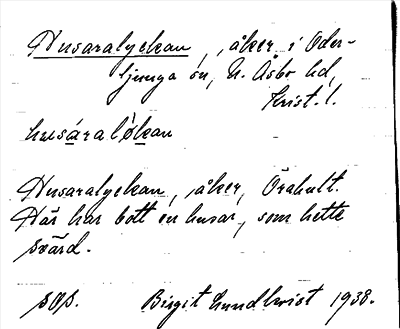 Husaralyckan, åker i Oder-
ljunga sn, N. Åsbo hd,
Krist. l.
husáralỳkan
Husaralyckan, åker, Örahult.
Här har bott en husar, som hette
svärd.
sgs. Birgit Lundkvist 1938.